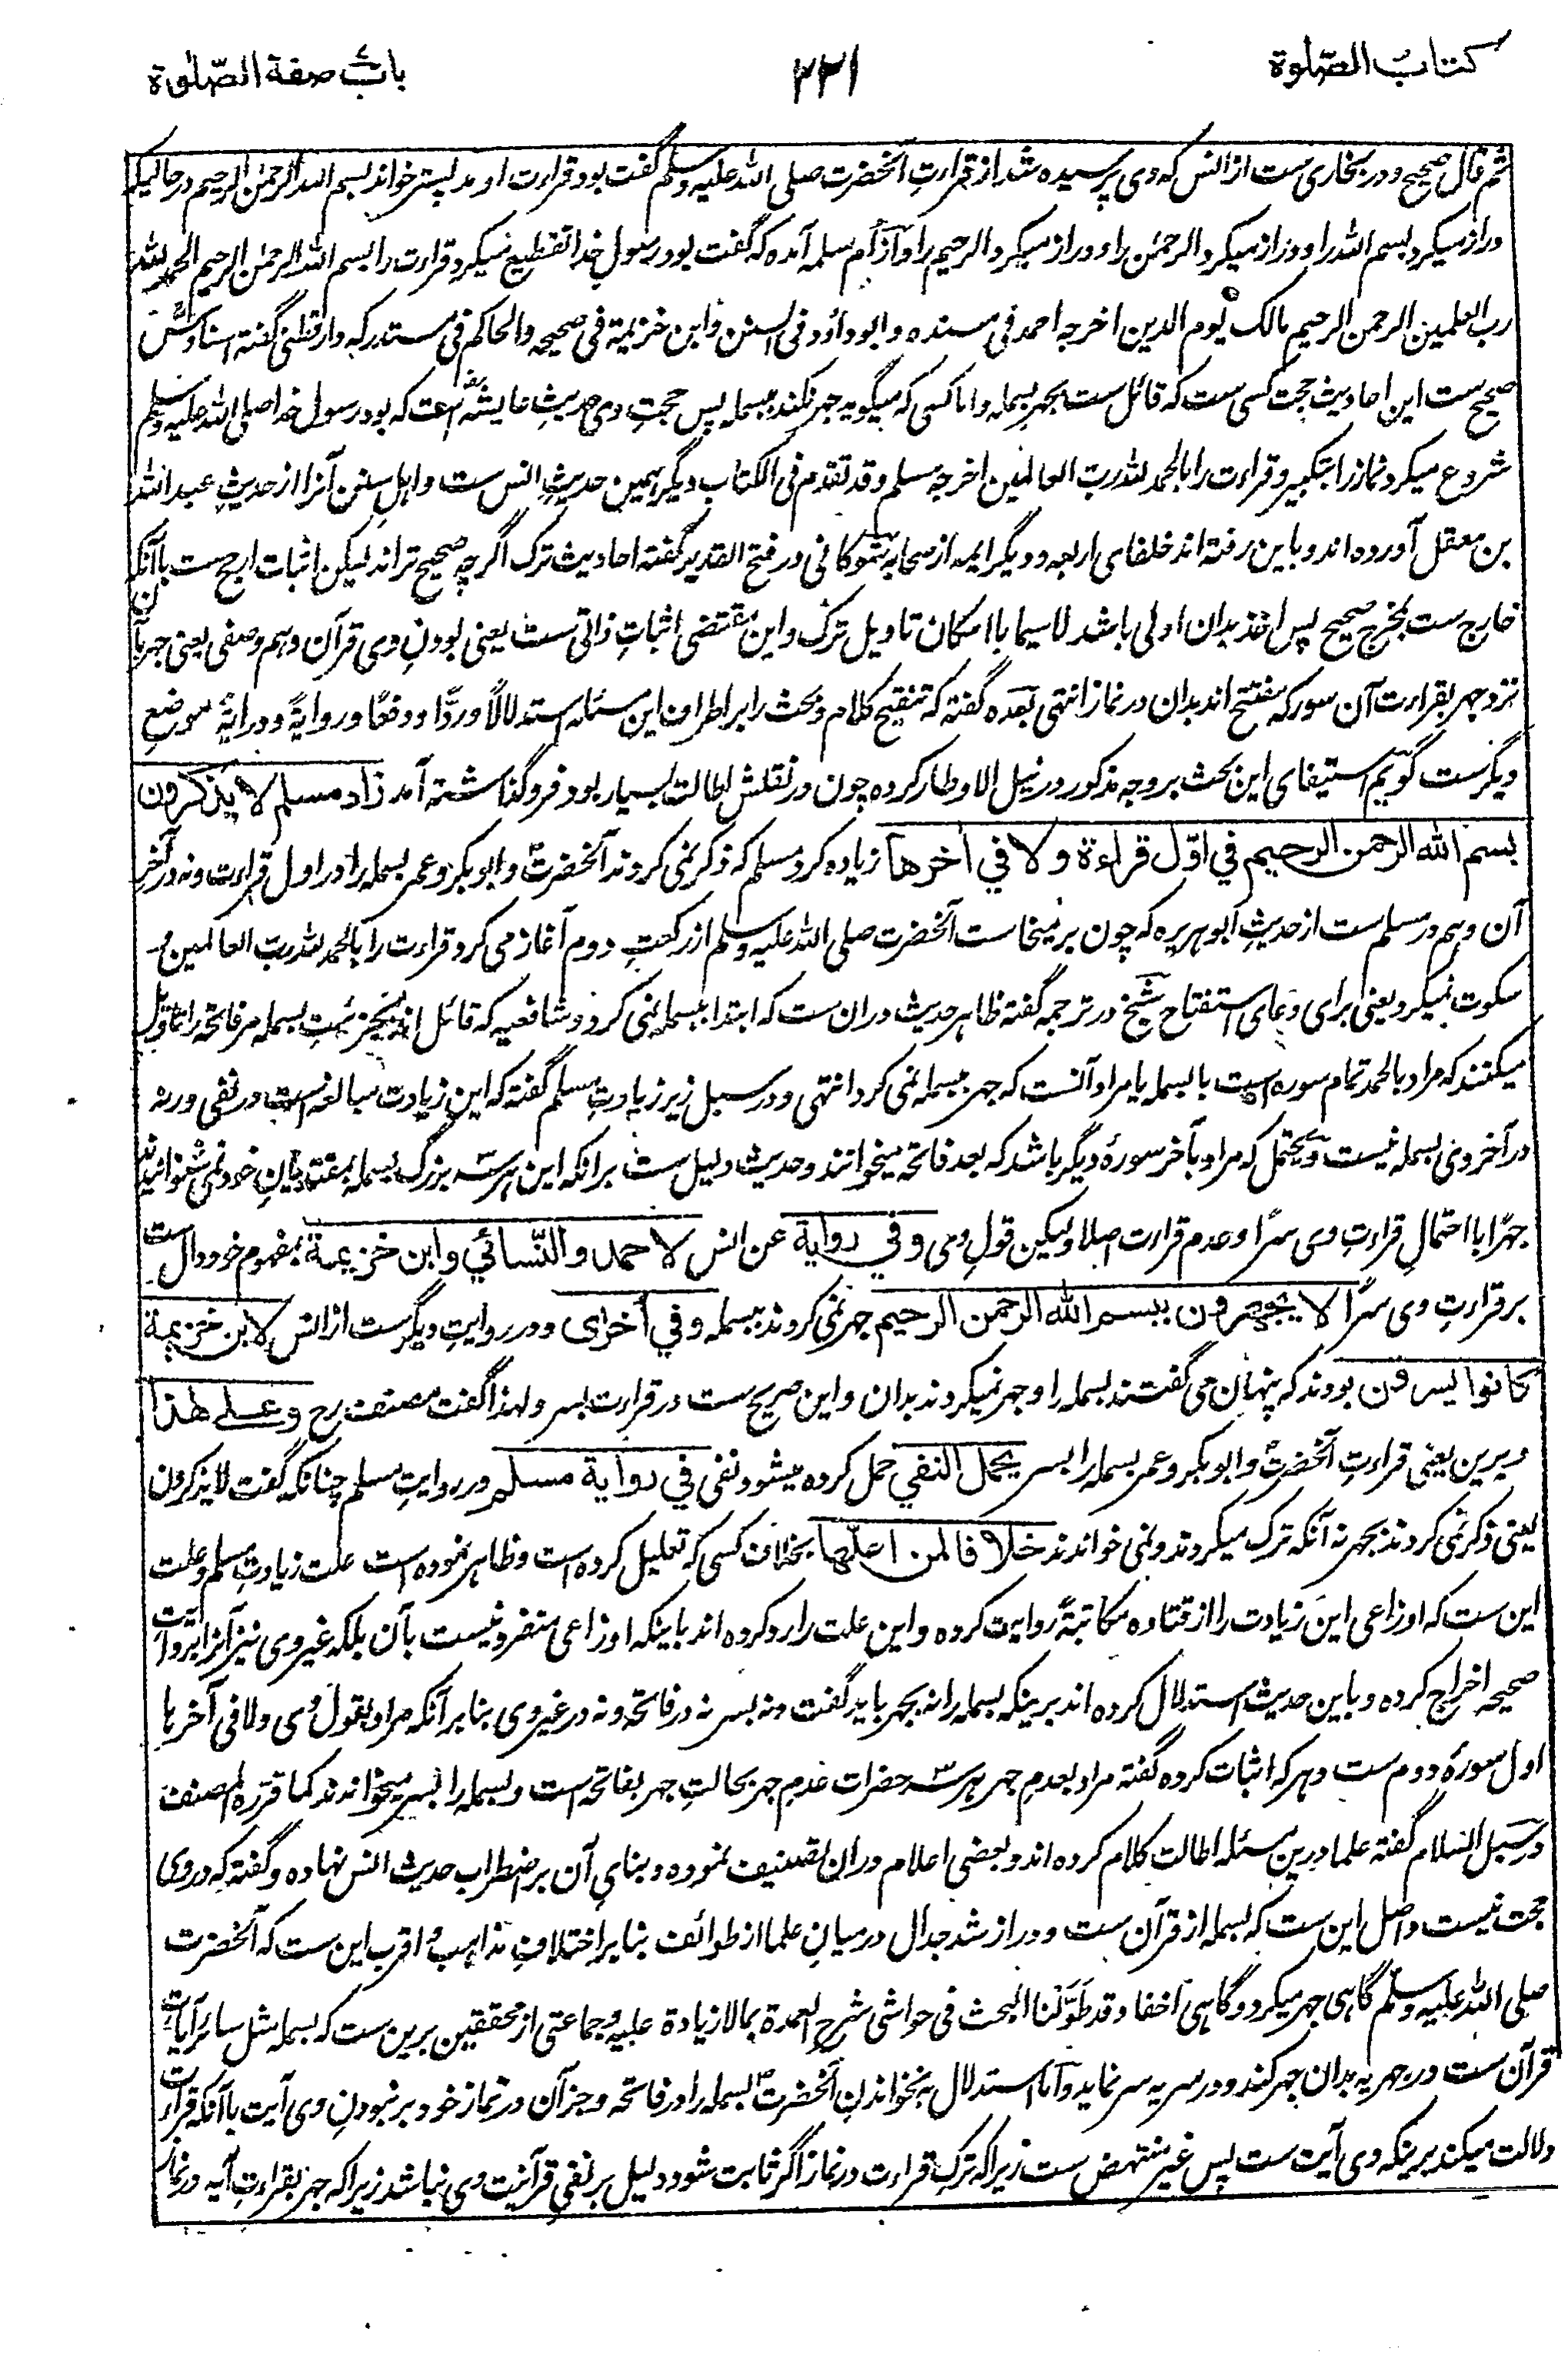 کتاب الصّلوة
۲۲۱
باب صفة الصّلوة
ثم قال صحیح و در بخاری ست از انس که وی پرسیده شد از قراءتِ آنحضرت صلی الله علیه وسلم گفت بود قراءت او مد لپستر خواند بسم الله الرحمٰن الرحیم در حالیکه
دراز میکرد بسم الله را و دراز میکرد الرحمٰن را و دراز میکرد الرحیم را و از ام سلمه آمده که گفت بود رسول خدا تقطیع میکرد قراءت را بسم الله الرحمٰن الرحیم الحمد لله
رب العلمین الرحمن الرحیم مالک یوم الدین اخرجه احمد فی مسنده و ابو داؤد فی السنن و ابن خزیمة فی صحیحه والحاکم فی مستدرکه دارقطنی گفته اسنادش
صحیح ست این احادیث حجت کسی ست که قائل ست بجهر بسمله و اما کسی که میگوید جهر نکند ببسمله پس حجتِ وی حدیثِ عایشه است که بود رسول خدا صلی الله علیه وسلم
شروع میکرد نماز را بتکبیر و قراءت را بالحمد لله رب العالمین اخرجه مسلم و قد تقدم فی الکتاب دیگر همین حدیثِ انس ست و اهلِ سنن آنرا از حدیثِ عبد الله
بن معقل آورده اند و باین رفته اند خلفای اربعه و دیگر ایمه از صحابه شوکانی در فتح القدیر گفته احادیث ترک اگرچه صحیح تر اند لیکن اثبات ارجح ست با آنکه
خارج ست بمخرج صحیح پس اخذ بدان اولی باشد لاسیما با امکان تاویل ترک و این مقتضی اثباتِ ذاتی ست یعنی بودنِ وی قرآن و هم وصفی یعنی جهر بآن
نزد جهر بقراءت آن سور که مفتتح اند بدان در نماز انتهی بعده گفته که تنقیح کلام و بحث را بر اطراف این مسئله استدلالاً و ردّا و دفعًا و روایةً و درایةً موضعِ
دیگرست گویم استیفای این بحث بر وجه مذکور در نیل الاوطار کرده چون در نقلش اطالت بسیار بود فروگذاشته آمد زاد مسلم لا یذکرون
بسم الله الرحمن الرحیم في اوّل قراءة ولا في اخرها زیاده کرد مسلم که ذکر نمی کردند آنحضرتؐ و ابو بکر و عمر بسمله را در اول قراءت و نه در آخر
آن و هم در مسلم ست از حدیثِ ابو هریره که چون بر میخاست آنحضرت صلی الله علیه وسلم از رکعتِ دوم آغاز می کرد قراءت را بالحمد لله رب العالمین و
سکوت نمیکرد یعنی برای دعای استفتاح شیخ در ترجمه گفته ظاهر حدیث دران ست که ابتدا ببسمله نمی کرد و شافعیه که قائل اند بجزئیتِ بسمله مر فاتحه را تاویل
میکنند که مراد بالحمد تمام سوره است با بسمله یا مراد آنست که جهر ببسمله نمی کرد انتهی و در سبل زیر زیادتِ مسلم گفته که این زیادت مبالغه است در نفی ورنه
در آخر وی بسمله نیست و یحتمل که مراد بآخر سورهٔ دیگر باشد که بعد فاتحه میخوانند و حدیث دلیل ست برانکه این هر سه بزرگ بسمله بمقتدیانِ خود نمی شنوانیدند
جهرًا با احتمالِ قراءتِ وی سرًا و عدم قراءت اصلا ولیکن قولِ وی وفي روایة عن انس لاحمد والنّسائي وابن خزیمة بمفهوم خود دال ست
بر قراءتِ وی سرًا لا یجهرون ببسم الله الرحمن الرحیم جهر نمی کردند ببسمله وفي أخری و در روایتِ دیگرست از انس لابن خزیمة
کانوا یسرون بودند که پنهان می گفتند بسمله را و جهر نمیکردند بدان و این صریح ست در قراءت بسر و لهذا گفت مصنف رح وعلی هذا
و برین یعنی قراءتِ آنحضرتؐ و ابو بکر و عمر بسمله را بسر یحمل النفي حمل کرده میشود نفی في روایة مسلم در روایتِ مسلم چنانکه گفت لا یذکرون
یعنی ذکر نمی کردند بجهر نه آنکه ترک میکردند و نمی خواندند خلافا لمن اعلّها بخلاف کسی که تعلیل کرده است و ظاهر نموده است علت زیادتِ مسلم و علت
این ست که اوزاعی این زیادت را از قتاده مکاتبةً روایت کرده و این علت را رد کرده اند باینکه اوزاعی متفرد نیست بآن بلکه غیر وی نیز آنرا بروایت
صحیحه اخراج کرده و باین حدیث استدلال کرده اند برینکه بسمله را نه بجهر باید گفت و نه بسر نه در فاتحه و نه در غیر وی بنا بر آنکه مراد بقول وی ولا فی آخرها
اول سورهٔ دوم ست و هر که اثبات کرده گفته مراد بعدمِ جهر هر سه حضرات عدمِ جهر بحالتِ جهر بفاتحه است و بسمله را بسر میخواندند کما قرّره المصنف
در سبل السلام گفته علما درین مسئله اطالت کلام کرده اند و بعضی اعلام دران تصنیف نموده و بنای آن بر اضطراب حدیث انس نهاده و گفته که در وی
حجت نیست و اصل این ست که بسمله از قرآن ست و دراز شد جدال درمیانِ علما از طوائف بنا بر اختلافِ مذاهب و اقرب این ست که آنحضرت
صلی الله علیه وسلم گاهی جهر میکرد و گاهی اخفا و قد طوّلنا البحث فی حواشی شرح العمدة بما لا زیادة علیه و جماعتی از محققین برین ست که بسمله مثل سائر آیات
قرآن ست در جهریه بدان جهر کند و در سریه سر نماید و اما استدلال بنخواندنِ آنحضرتؐ بسمله را در فاتحه و جز آن در نماز خود بر نبودنِ وی آیت با آنکه قراءت
دلالت میکند برینکه وی آیت ست پس غیر منتهض ست زیرا که ترکِ قراءت در نماز اگر ثابت شود دلیل بر نفیِ قرآنیت وی نباشد زیرا که جهر بقراءتِ آیه در نماز